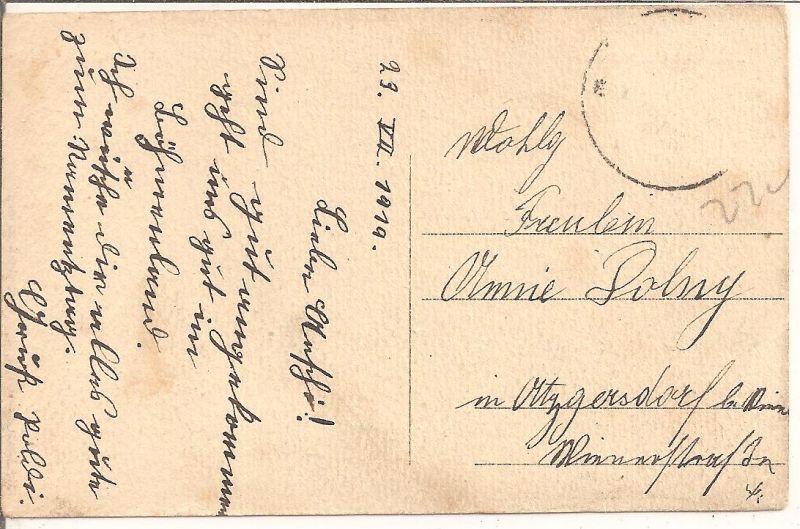 23. VII. 1919.
Liebe Anschi!
Sind gut angekommen
geht uns gut im
Böhmerland.
Ich wüsche dir alles gute
zum Namenstag.
Gruß Poldi.
Wohlg
Freulein
Annie Polny
in Atzgersdorf b. Wien
Wienerstraße